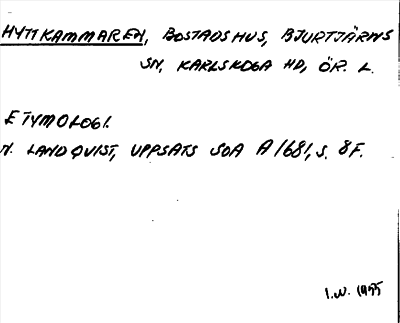 HYTTKAMMAREN, BOSTADSHUS, BJURTJÄRNS
SN, KARLSKOGA HD, ÖR. L.
ETYMOLOGI.
N. LANDQVIST, UPPSATS SOA A 1681, S. 8F.
I.W. 1955